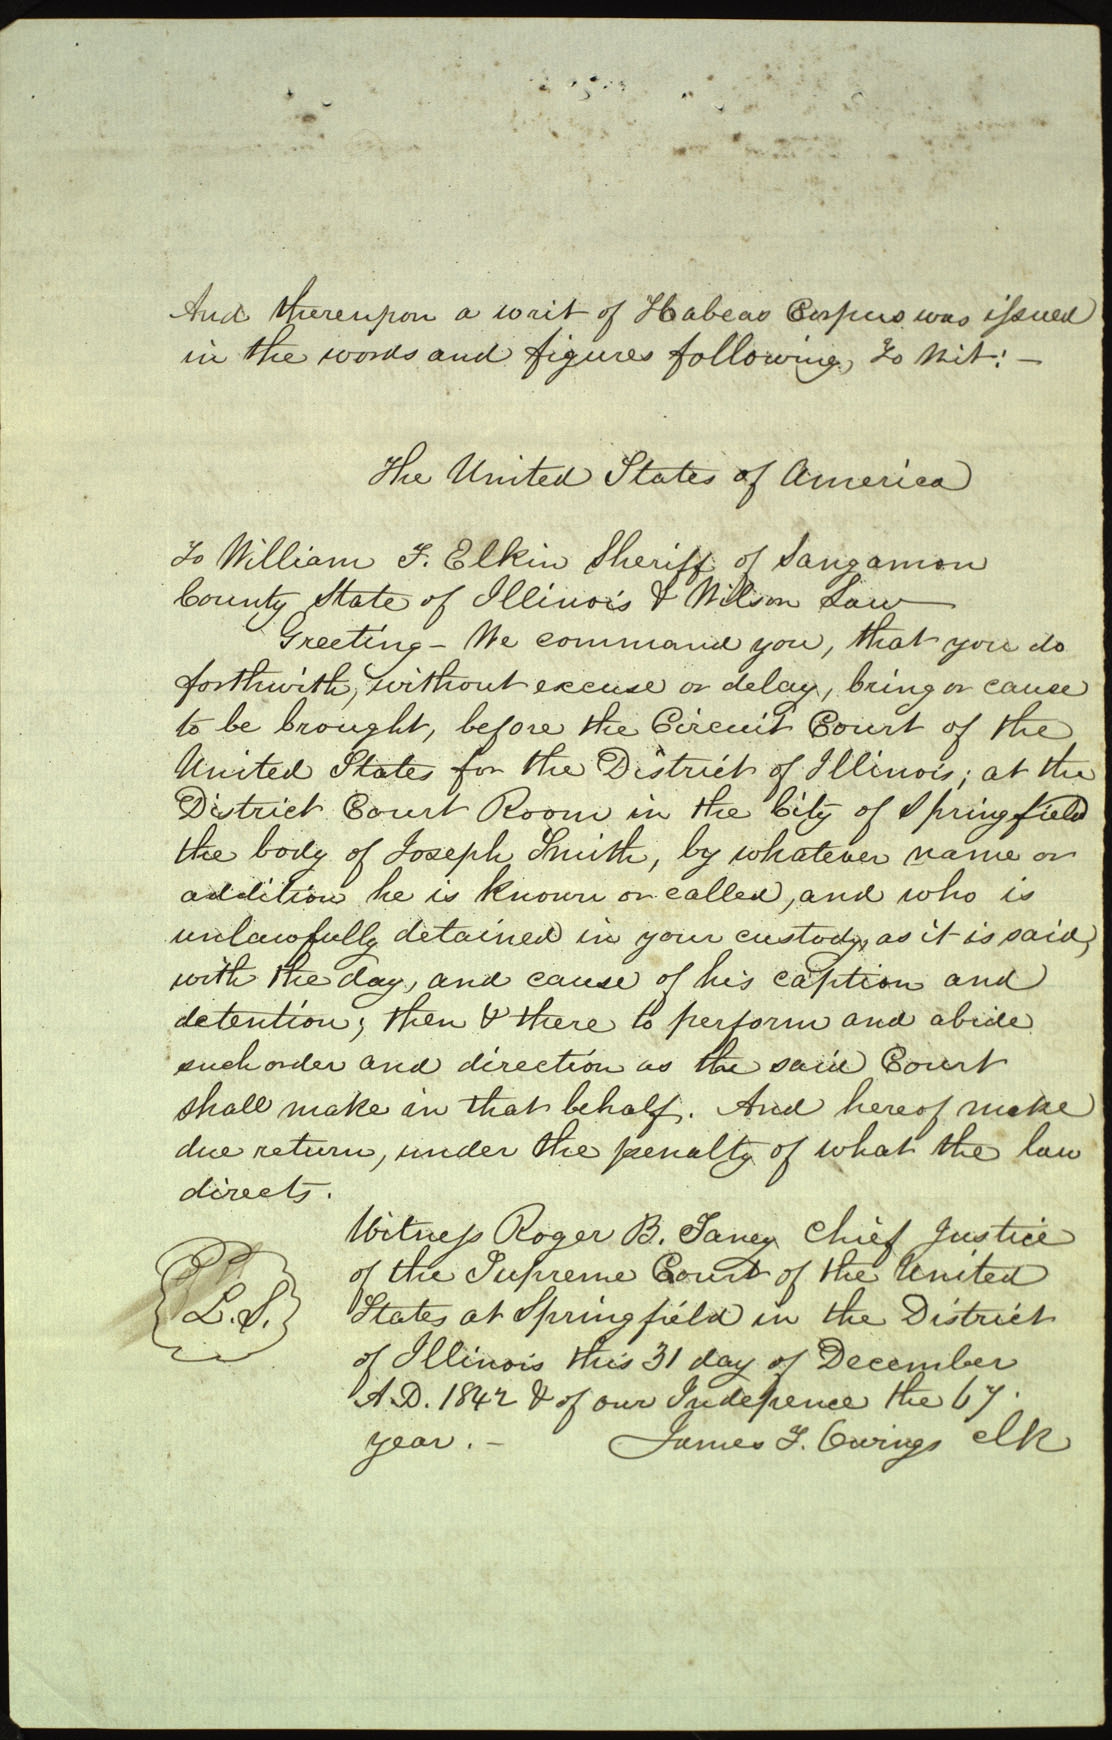 And thereupon a writ of Habeas Corpus was issued
in the words and figures following, To Wit: —
The United States of America
To William F. Elkin Sheriff of Sangamon
County State of Illinois & Wilson Law —
Greeting — We command you, that you do
forthwith, without excuse or delay, bring or cause
to be brought, before the Circuit Court of the
United States for the District of Illinois; at the
District Court Room in the City of Springfield
the body of Joseph Smith, by whatever name or
addition he is known or called, and who is
unlawfully detained in your custody, as it is said,
with the day, and cause of his caption and
detention; then & there to perform and abide
such order and direction as the said Court
shall make in that behalf. And hereof make
due return, under the penalty of what the law
directs.
Witness Roger B. Taney Chief Justice
of the Supreme Court of the United
L.S.
States at Springfield in the District
of Illinois this 31 day of December
A.D. 1842 & of our Indepence the 67.
year. — James F. Owings clk